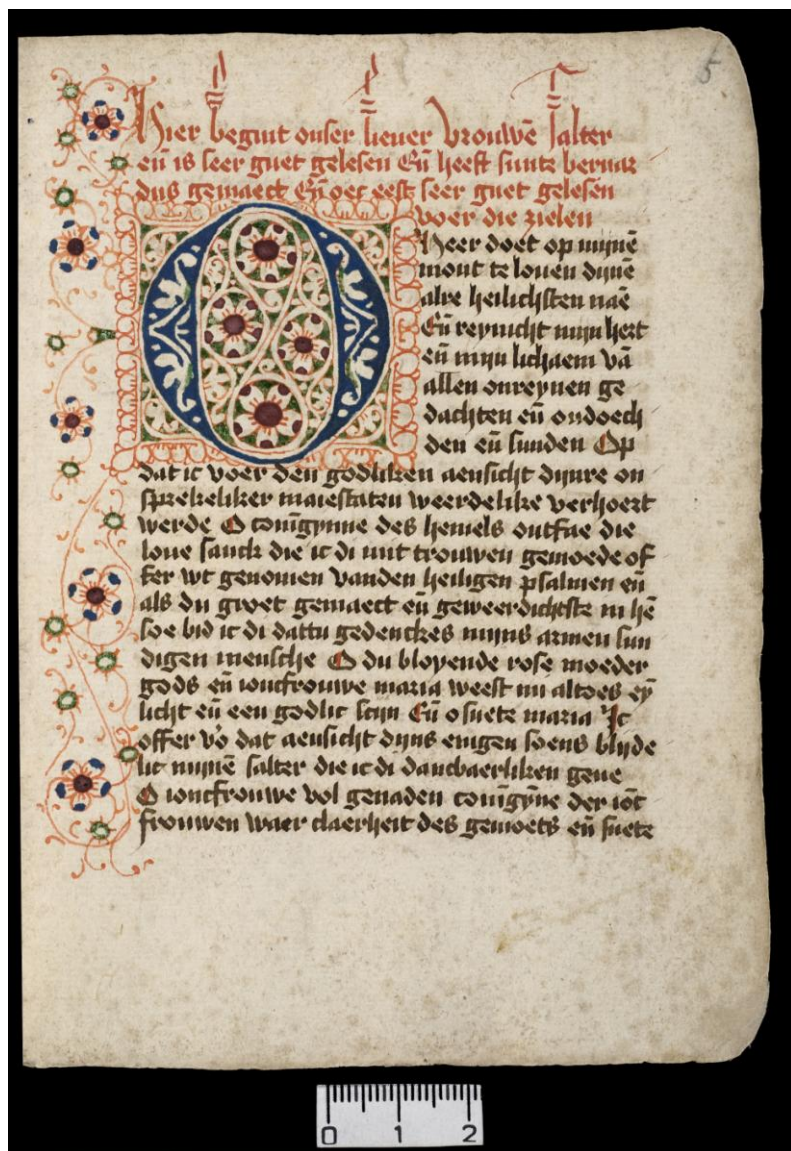 5
Hier begint onser lieuer vrouwē salter
eū is seer guet gelesen Eū heeft sunte bernar
dus gemaect Eū oec eest seer guet gelesen
voer die zielen
O Heer doet op mijnē
mont te louen dijnē
alre heilichsten naē
Eū reynicht mijn hert
eū mijn lichaem vā
allen onreynen ge
dachten eū ondoech
den eū sunden Op
dat ic voer den godliken aensicht dijnre on
sprekeliker maiestaten weerdelike verhoert
werde O coniгgynne des hemels ontfae die
loue sanck die ic di mit trouwen gemoede of
fer wt genomen vanden heiligen psalmen eū
als du groet gemaect eū geweerdichste in hē
soe bid ic di dattu gedenckes mijns armen sun
digen mensche O du bloyende rose moeder
gods eū ioncfrouwe maria weest mi altoes ey
licht eū een godlic scijn Eū o suete maria Ic
offer vo dat aensicht dijns enigen soens blijde
lic mijnē salter die ic di dancbaerliken geue
O ioncfrouwe vol genaden conīgȳne der iōc
frouwen waer claerheit des gemoets eū suete
0 1 2